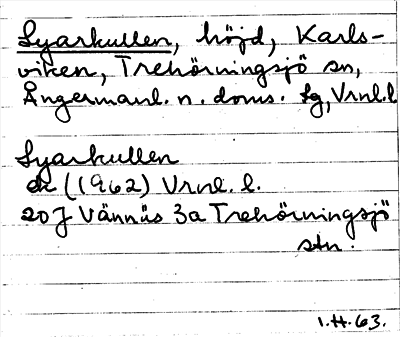 Lyarkullen, höjd, Karls-
viken, Trehörningsjö sn,
Ångermanl. n. doms. Lg, Vrnl. l
Lyarkullen
ek (1962) Vrnl. l.
20 J Vännäs 3a Trehörningsjö
stn.
1.H.63.